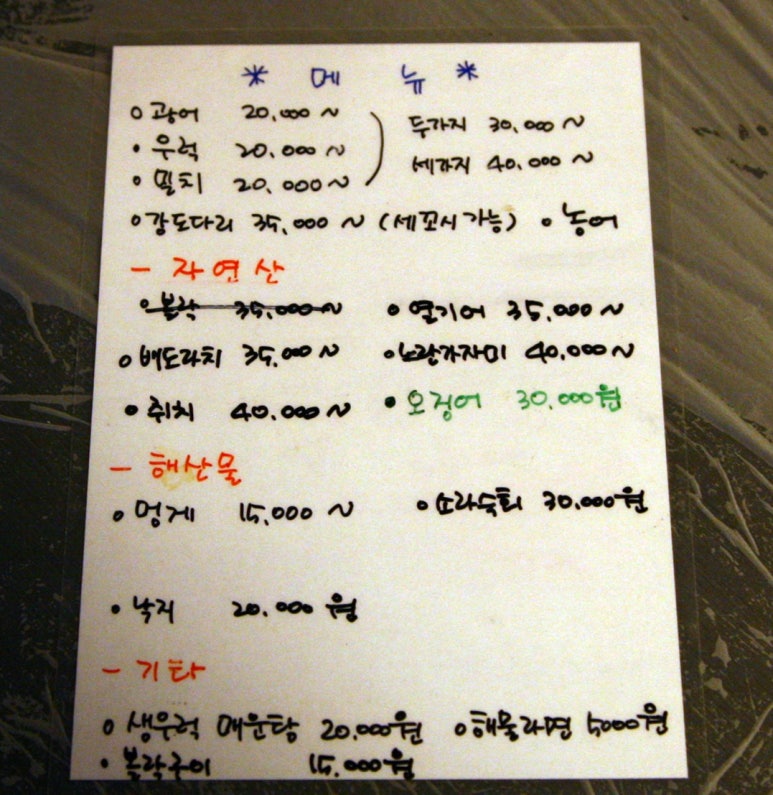 * 메 뉴 *
o 광어 20,000 ~ 두가지 30,000 ~
• 우럭 20,000 ~ 세가지 40,000 ~
• 밀치 20,000 ~
o 강도다리 35,000 ~ (세꼬시 가능) • 농어
- 자연산
• 볼락 35,000 ~ • 열기어 35,000 ~
o 배도라치 35,000 ~ • 노랑가자미 40,000 ~
• 쥐치 40,000 ~ • 오징어 30,000원
- 해산물
o 멍게 15,000 ~ o 소라숙회 30,000원
• 낙지 20,000 원
- 기타
o 생우럭 매운탕 20,000원 o 해물라면 5000원
• 볼락구이 15,000원